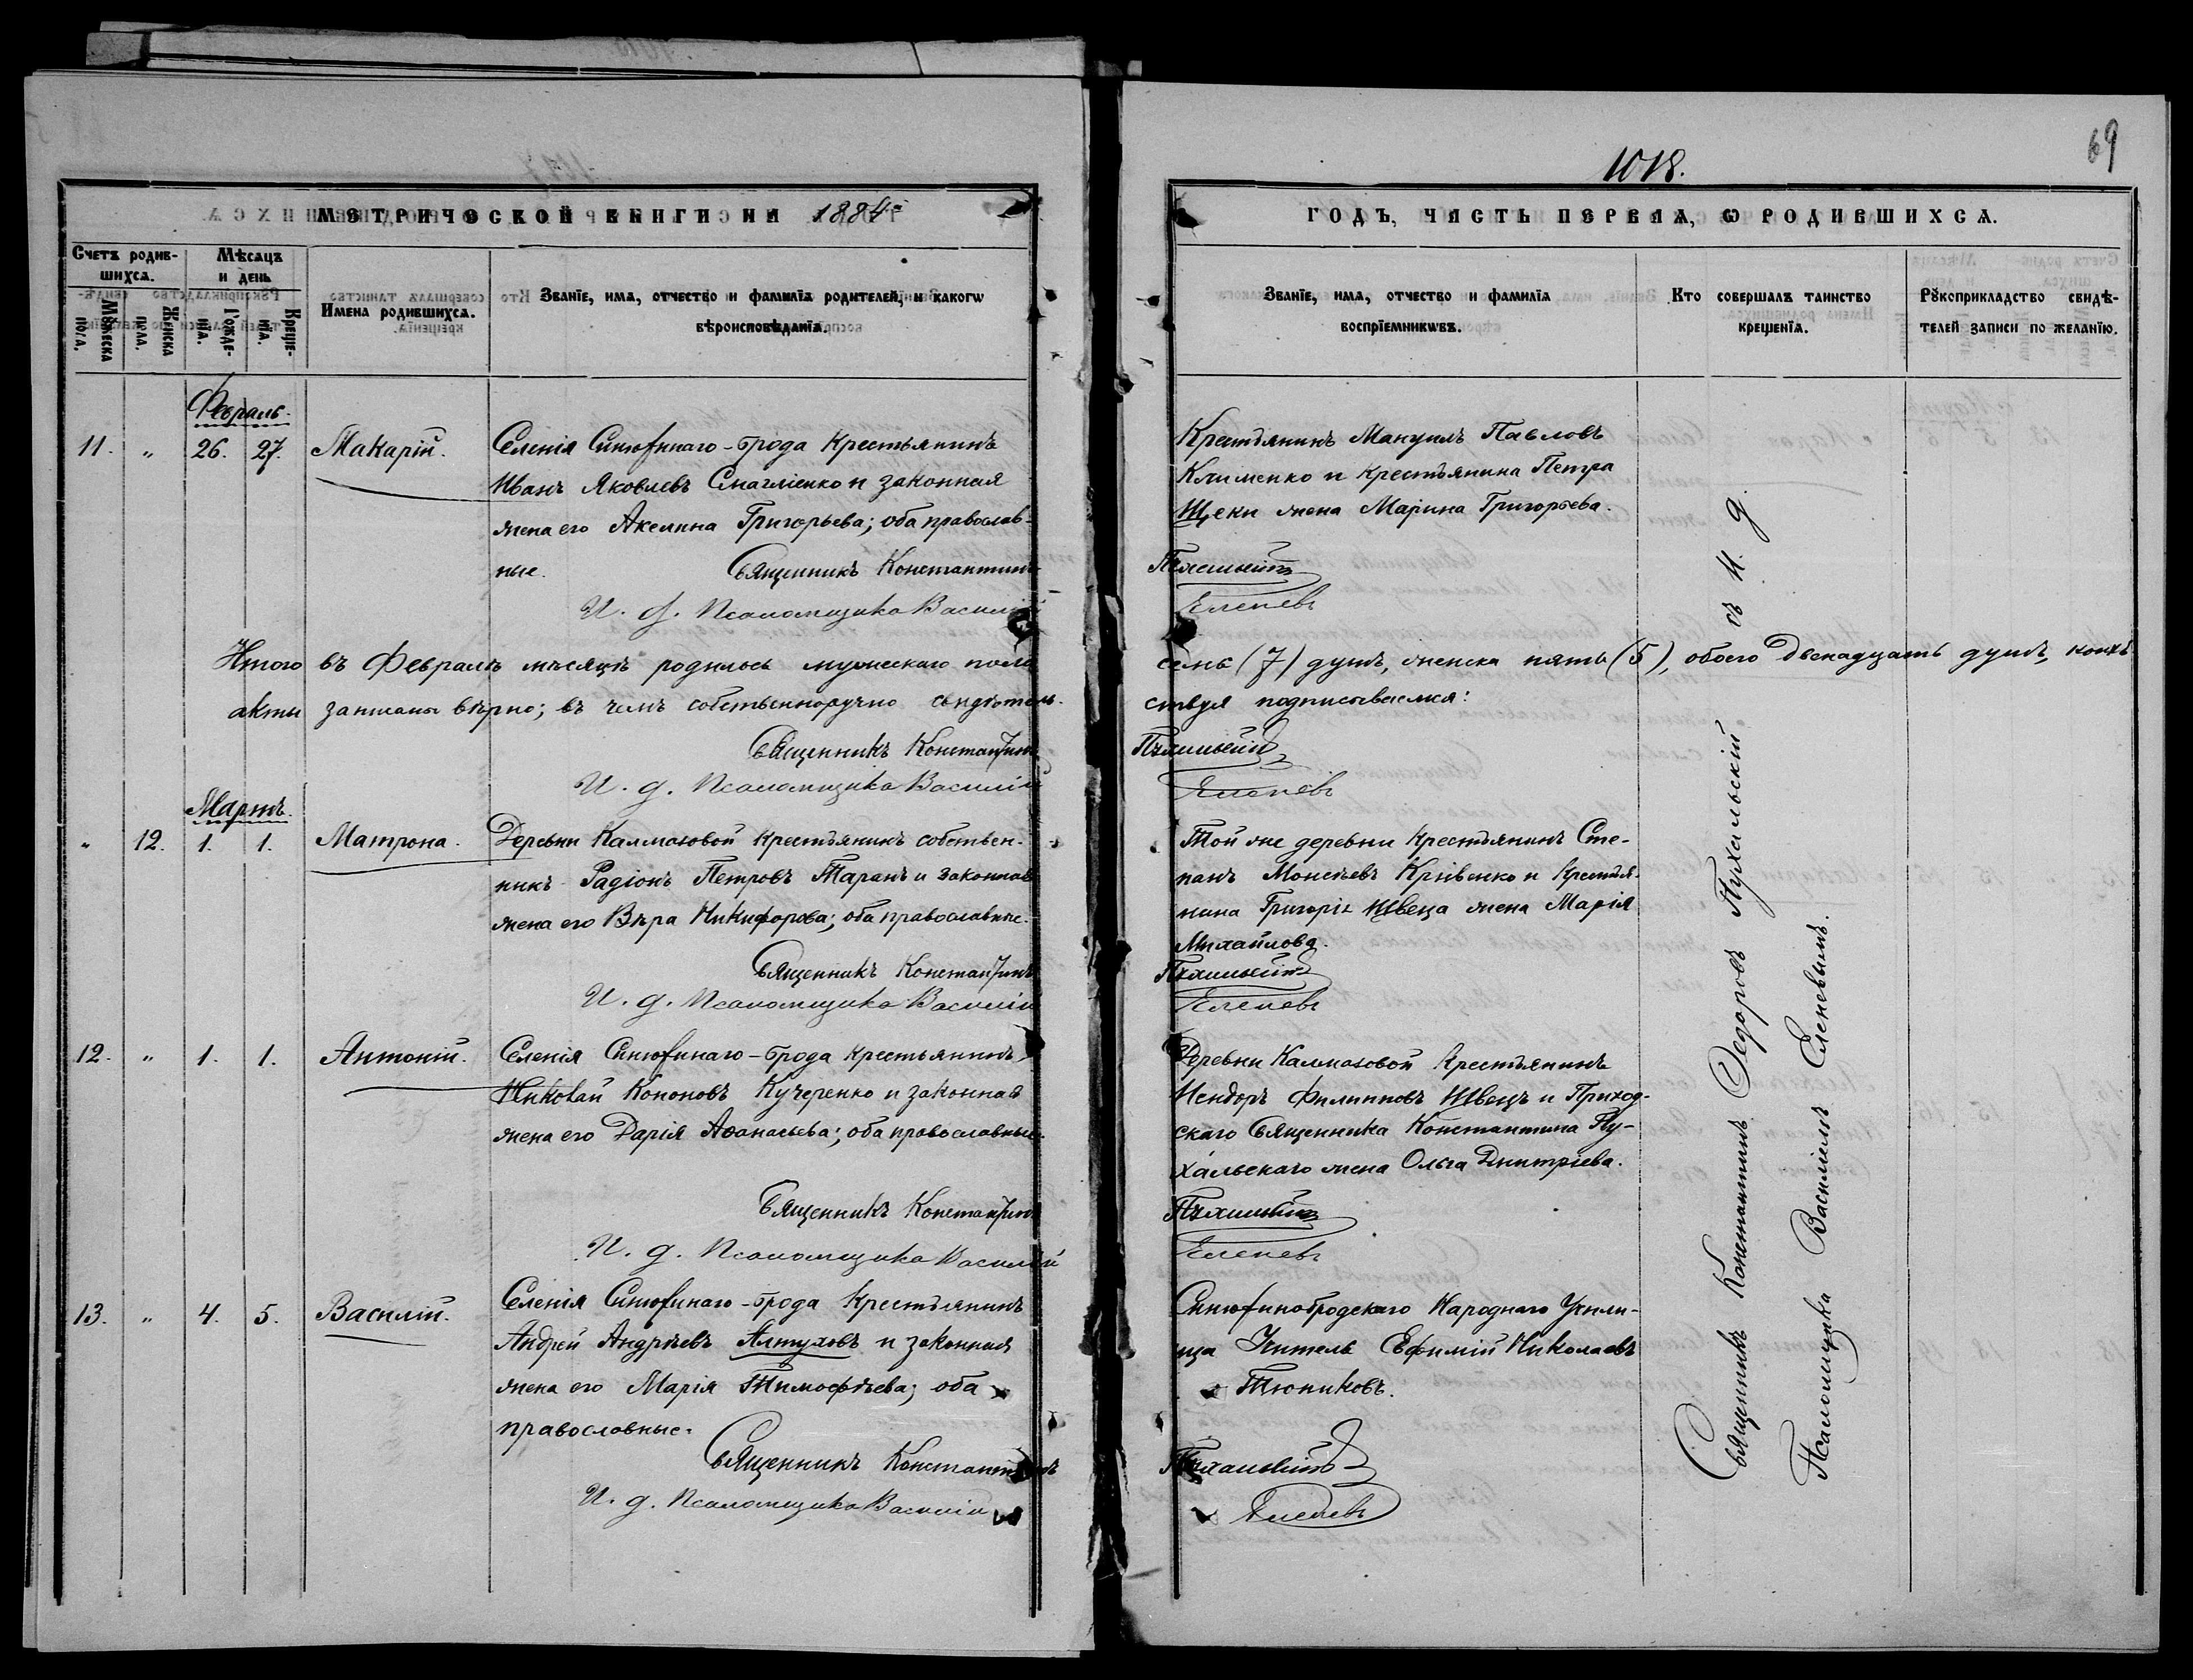 1018.
69
МЕТРИЧЕСКОЙ КНИГИ НА 1884
ГОДЪ, ЧАСТЬ ПЕРВАЯ, Ѡ РОДИВШИХСЯ.
Счетъ родив-
шихся.
Мѣсяцъ
и день
Мꙋжеска
пола.
Женска
пола.
Рожде-
нїя.
Креще-
нїя.
Имена родившихся.
Званїе, имя, отчество и фамилїя родителей, и какогѡ
вѣроисповѣданїя.
Званїе, имя, отчество и фамилїя
воспрїемникѡвъ.
Кто совершалъ таинство
крещенїя.
Рꙋкоприкладство свидѣ-
телей записи по желанїю.
Февраль.
11. " 26. 27. Макарій.
Селенія Синюхинаго-брода Крестьянинъ
Иванъ Яковлевъ Смагліенко и законная
жена его Акелина Григорьева; оба православ-
ные.
Священникъ Константинъ
И. д. Псаломщика Василій
Крестьянинъ Мануилъ Павловъ
Клименко и крестьянина Петра
Щеки жена Марина Григорьева.
Пухальскій
Еленевъ
Итого въ Февралѣ мѣсяцѣ родилось мужескаго пола семь (7) душъ, женска пять (5), обоего двенадцать душъ, коихъ
акты записаны вѣрно; въ чемъ собственноручно свидѣтель-ствуя подписываемся:
Священникъ Константинъ Пухальскій
И. д. Псаломщика Василій Еленевъ
Мартъ.
" 12. 1. 1. Матрона.
Деревни Калмазовой крестьянинъ собствен-
никъ Радіонъ Петровъ Таранъ и законная
жена его Вѣра Никифорова; оба православные.
Священникъ Константинъ
И. д. Псаломщика Василій
Той же деревни крестьянинъ Сте-
панъ Моисѣевъ Кривенко и крестья-
нина Григорія Швеца жена Марія
Михайлова.
Пухальскій
Еленевъ
12. " 1. 1. Антоній.
Селенія Синюхинаго-брода крестьянинъ
Николай Кононовъ Кучеренко и законная
жена его Дарія Аѳанасьева; оба православные.
Священникъ Константинъ
И. д. Псаломщика Василій
Деревни Калмазовой крестьянинъ
Исидоръ Филипповъ Швецъ и Приход-
скаго Священника Константина Пу-
хальскаго жена Ольга Дмитріева.
Пухальскій
Еленевъ
13. " 4. 5. Василій.
Селенія Синюхинаго-брода Крестьянинъ
Андрей Андрѣевъ Алтуховъ и законная
жена его Марія Тимофѣева; оба
православные.
Священникъ Константинъ
И. д. Псаломщика Василій
Синюхинобродскаго Народнаго Учили-
ща Учитель Ефимій Николаевъ
Тюниковъ.
Пухальскій
Еленевъ
Священникъ Константинъ Ѳедоровъ Пухальскій съ И. д.
Псаломщика Василіемъ Еленевымъ.